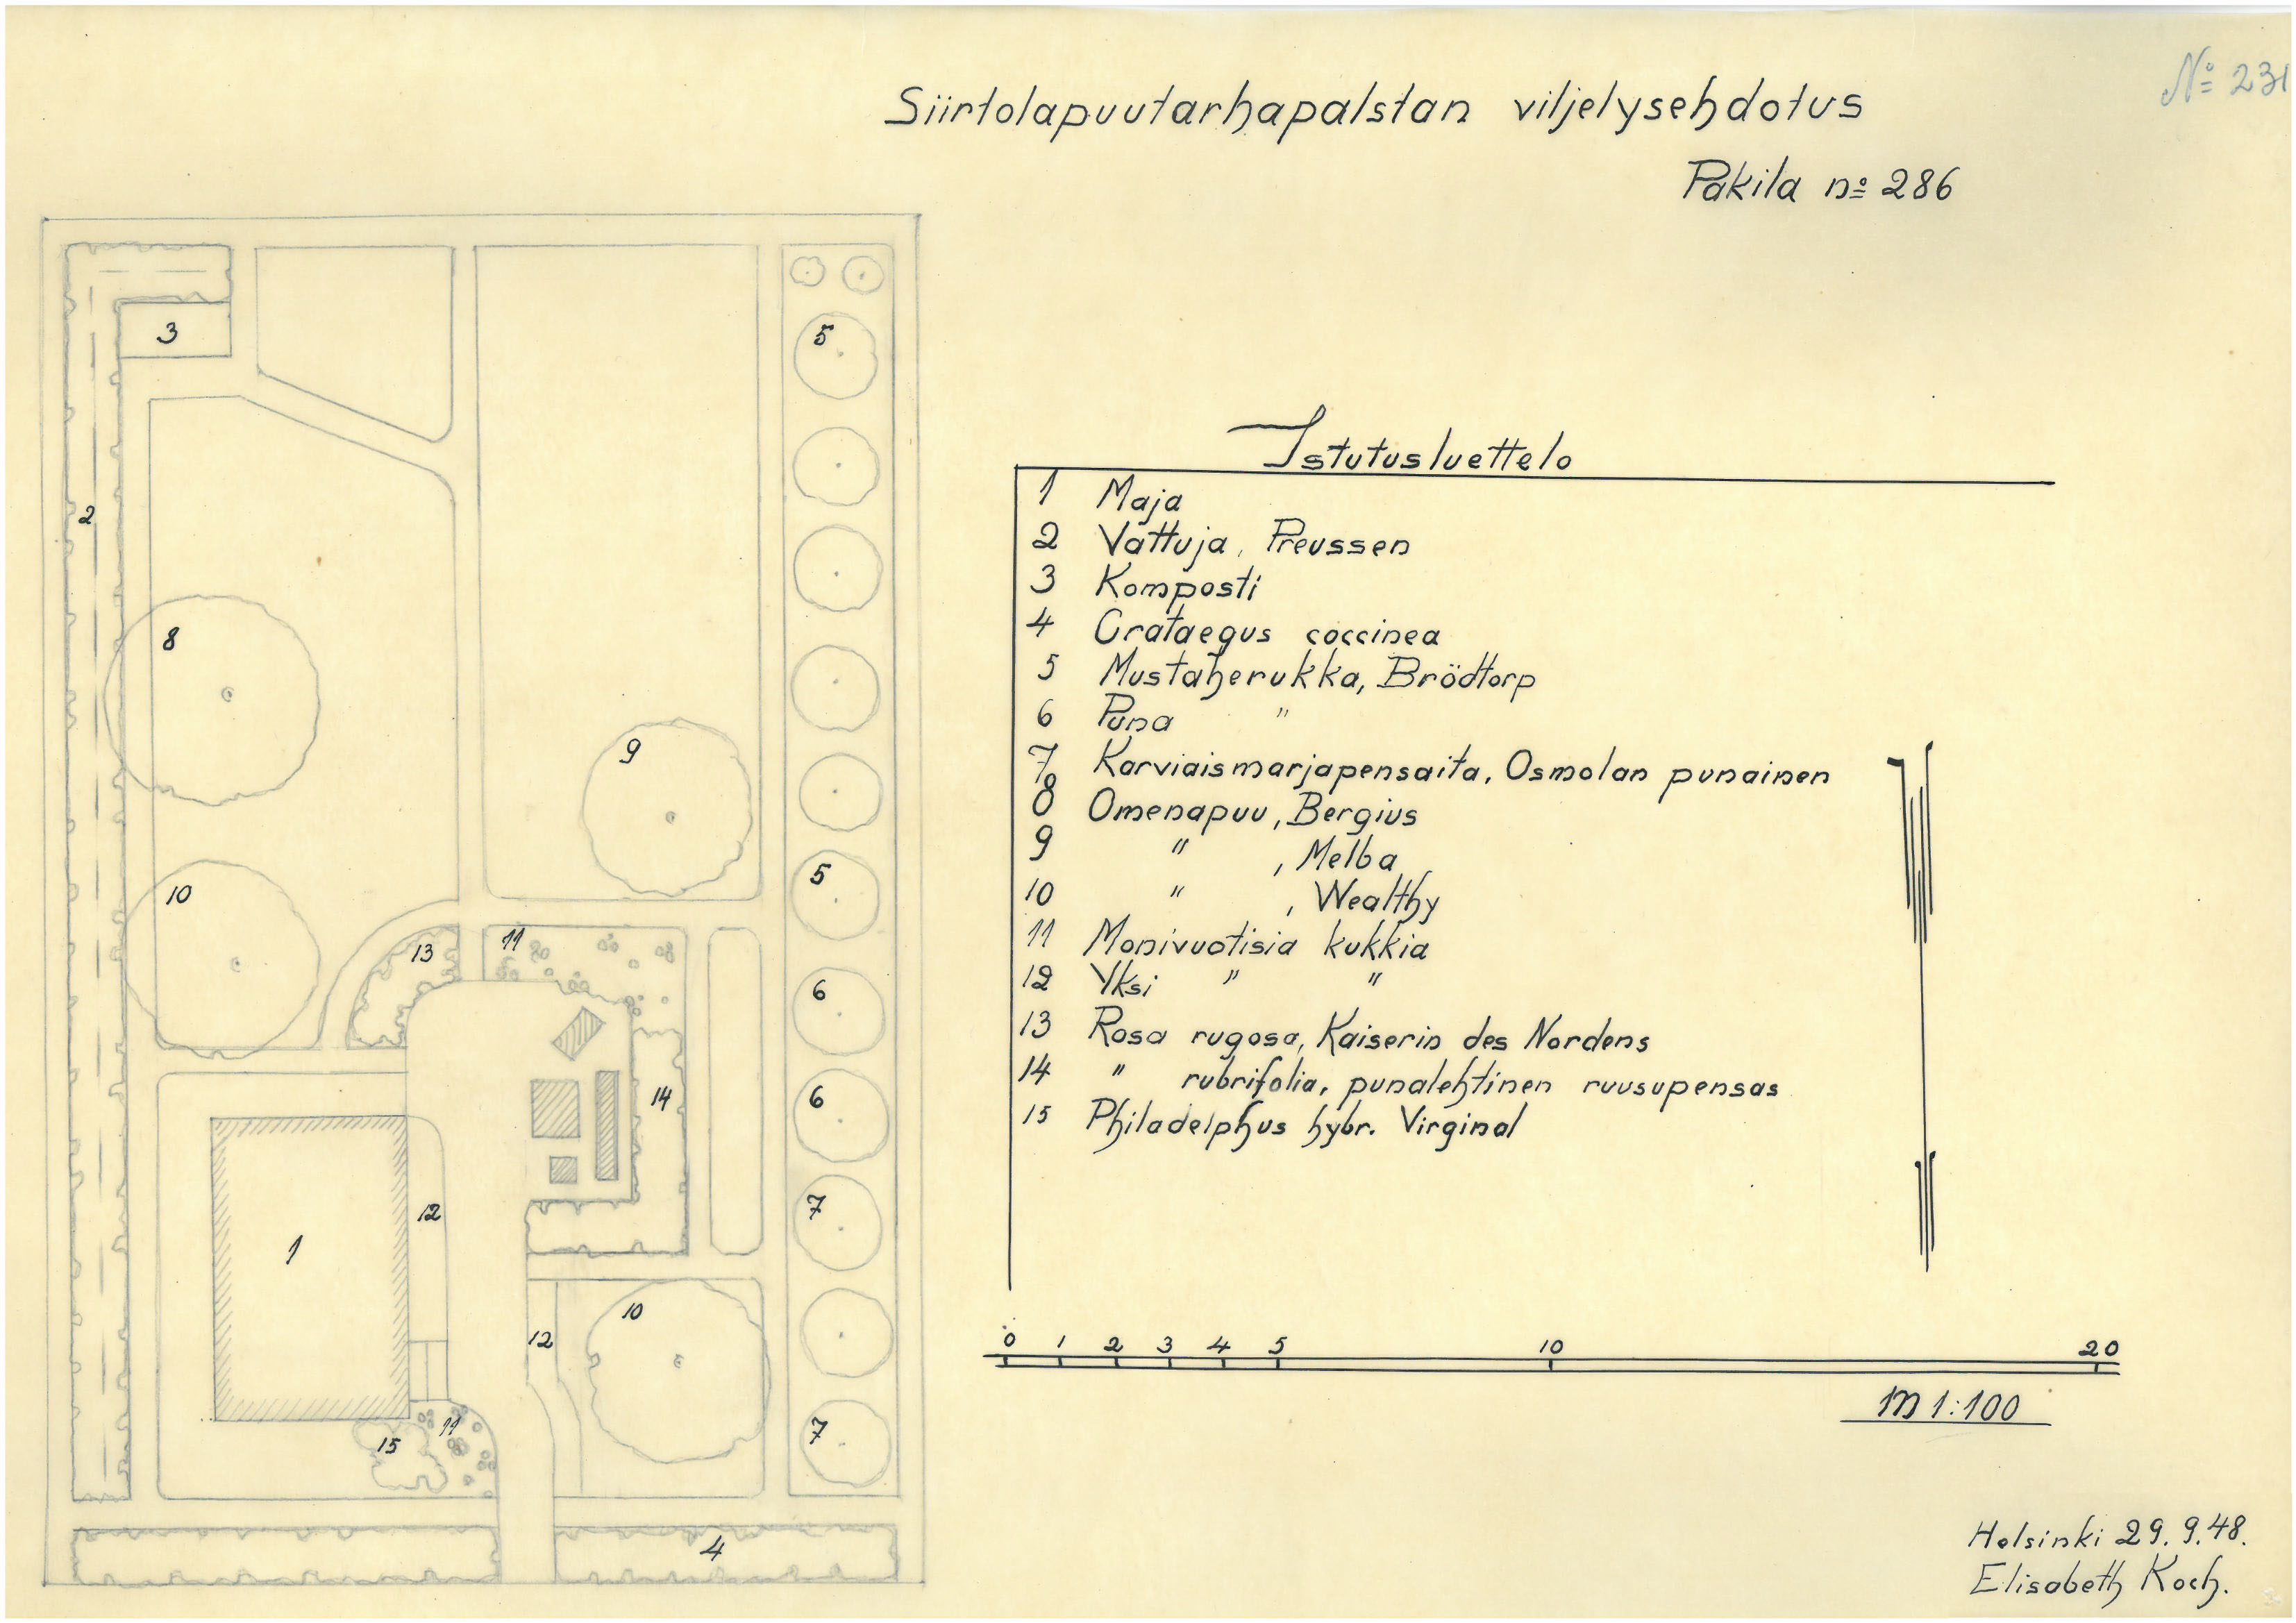 Nº 231
Siirtolapuutarhapalstan viljelysehdotus
Pakila nº 286
Istutusluettelo
1 Maja
2 Vattuja, Preussen
3 Komposti
4 Crataegus coccinea
5 Mustaherukka, Brödtorp
6 Puna "
7 Karviaismarjapensaita, Osmolan punainen
8 Omenapuu, Bergius
9 " , Melba
10 " , Wealthy
11 Monivuotisia kukkia
12 Yksi " "
13 Rosa rugosa, Kaiserin des Nordens
14 " rubrifolia, punalehtinen ruusupensas
15 Philadelphus hybr. Virginal
0 1 2 3 4 5 10 20
m 1:100
Helsinki 29.9.48.
Elisabeth Koch.
3
5
2
8
9
10
5
13
11
6
14
6
7
12
1
10
12
11
15
7
4